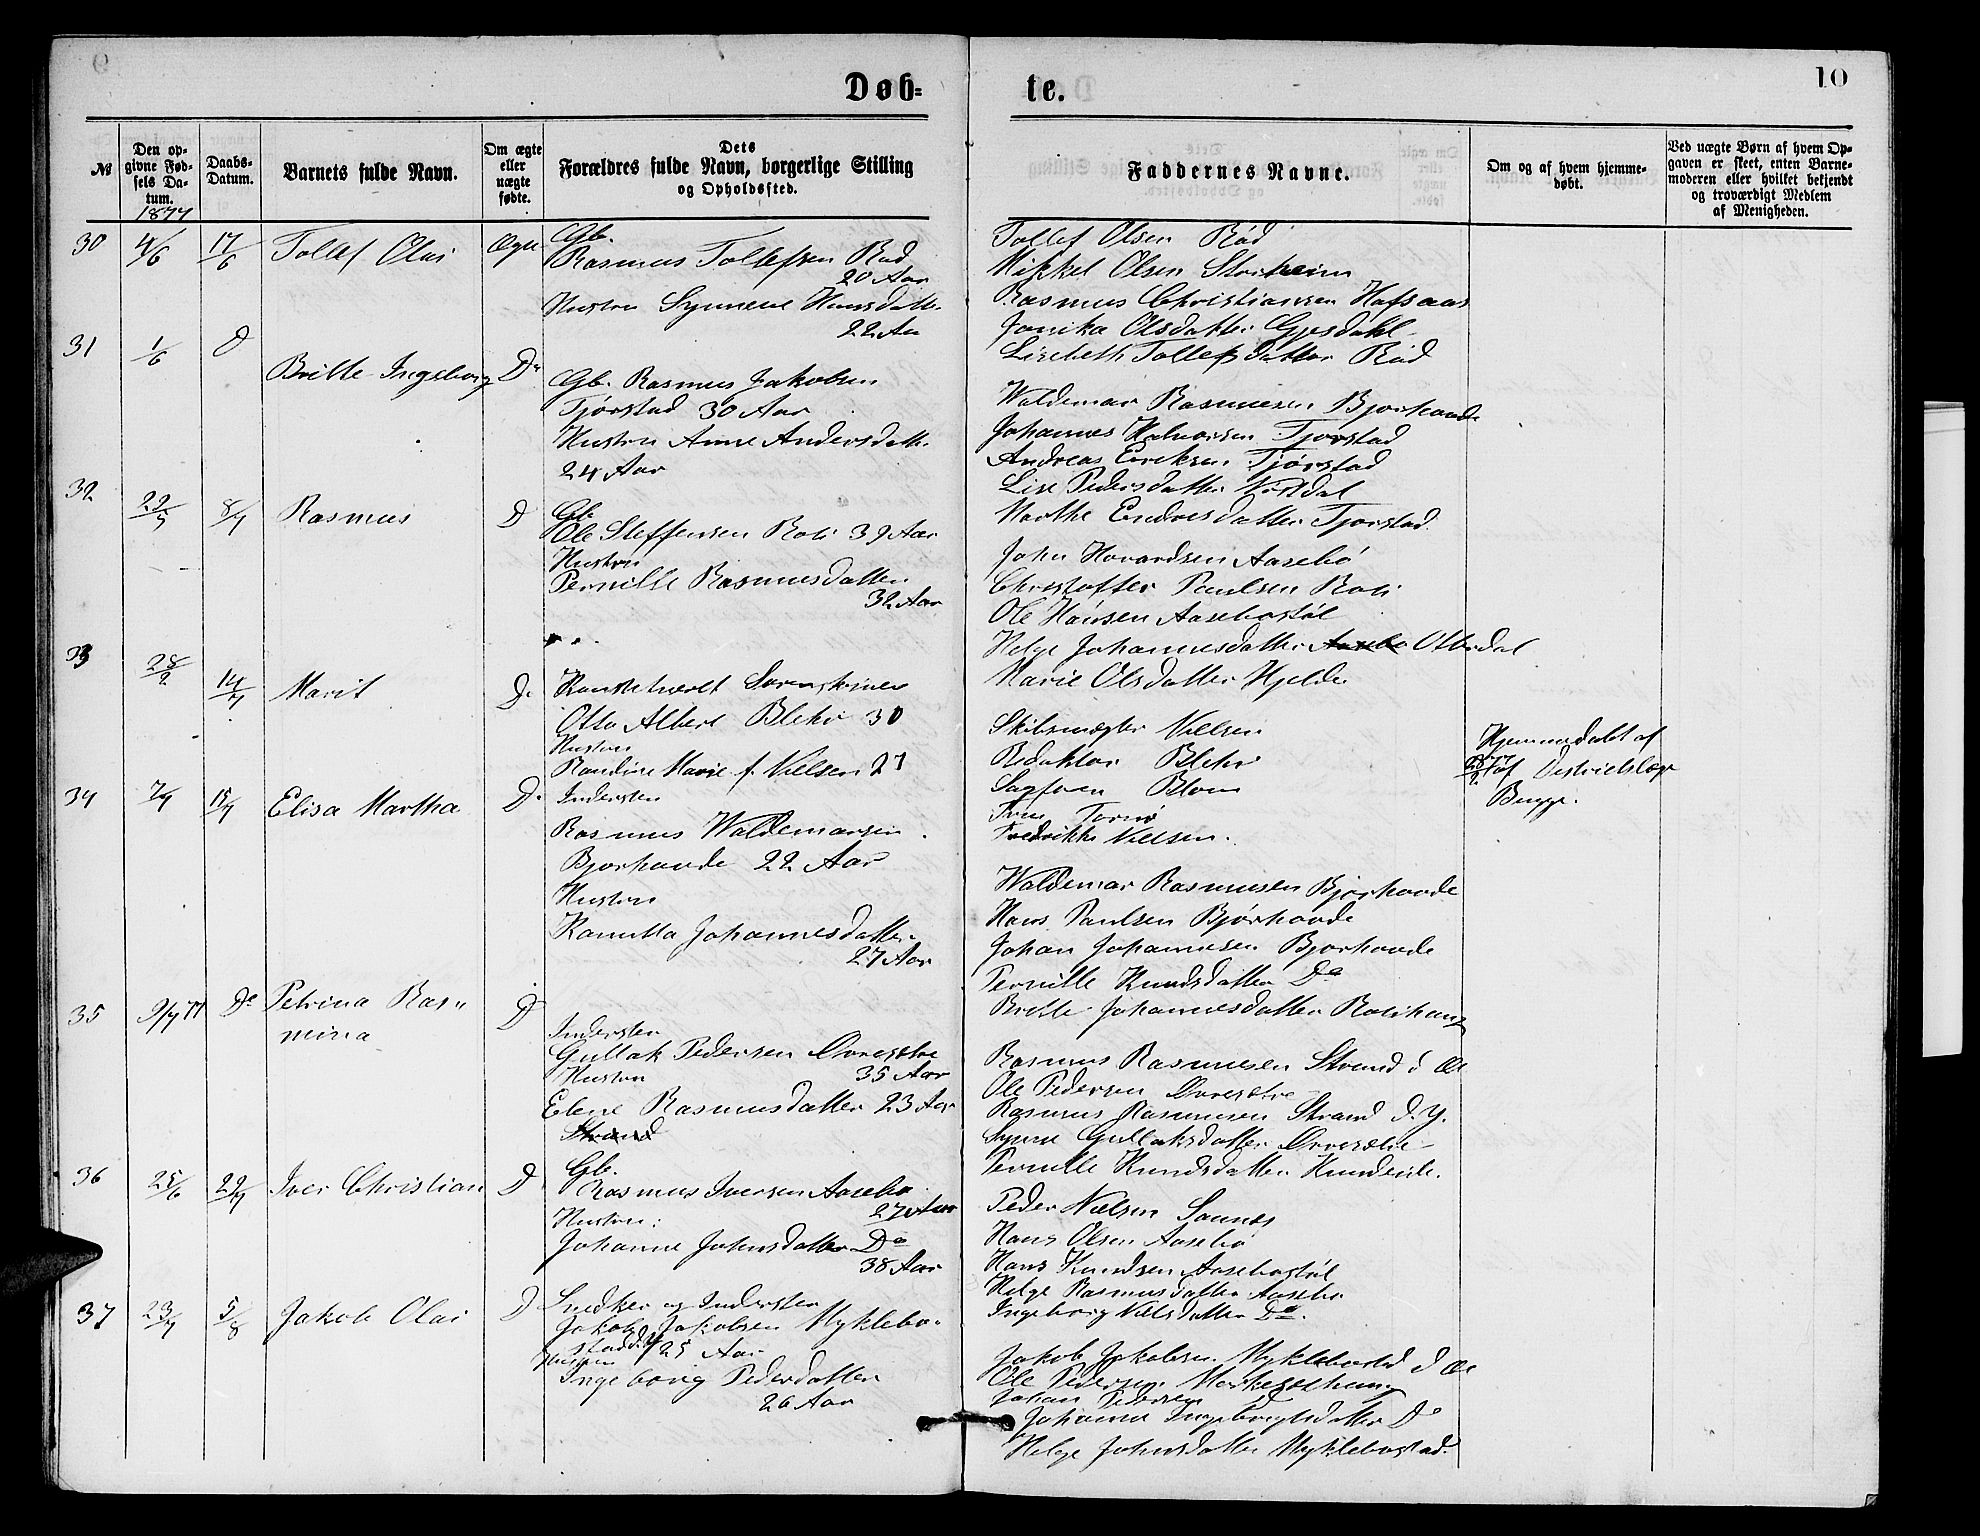 Døb=
te.
10
№
Den op-
givne Fød-
sels Da-
tum.
1877
Daabs-
Datum.
Barnets fulde Navn.
Om ægte
eller
uægte
fødte.
Dets
Forældres fulde Navn, borgerlige Stilling
og Opholdssted.
Faddernes Navne.
Om og af hvem hjemme-
døbt.
Ved uægte Børn af hvem Op-
gaven er skeet, enten Barne-
moderen eller hvilket bekjendt
og troværdigt Medlem
af Menigheden.
30 4/6 17/6 Tollef Olai
Gb.
Rasmus Tollefsen Rød
20 Aar
Hustru Synneve Hansdatt.
22 Aar
Tollef Olsen Rød
Mikkel Olsen Storheim
Rasmus Christiansen Hafsaas
Jonika Olsdatter Gjesdahl
Lisebeth Tollefsdatter Rød
31 1/6 D Britte Ingeborg Do
Gb. Rasmus Jakobsen
Tjørstad 30 Aar
Hustru Anne Andersdatt.
24 Aar
Waldemar Rasmusen Bjørhovde
Johannes Halvorsen Tjørstad
Andreas Eriksen Tjørstad
Lise Pedersdatter
Marthe Endresdatter Tjørstad
32 8/7 Rasmus D
Gb.
Ole Steffensen Roti 39 Aar
Hustru
Pernille Rasmusdatter
32 Aar
John Hovardsen Aasebø
Christoffer Paulsen Roti
Ole Hansen Aasebøstøl
Helge Johannesdatter Aasebø Otterdal
Marie Olsdatter Hjelde
33 28/2 14/7 Marit D.
Konstitueret Sorenskriver
Otto Albert Blehr 30
Hustru
Randine Marie f. Nielsen 27
Skibsmægler Nielsen
Redaktør Blehr
Sagfører Blom
Trine
Fredrikke Nielsen.
Hjemmedøbt af
28/2 77 af Distriktslæge
Bugge.
34 7/7 15/7 Elisa Martha D.
Inderster
Rasmus Waldemarsen
Bjørhovde 22 Aar
Hustru
Kanutta Johannesdatter
27 Aar
Waldemar Rasmusen Bjørhovde
Hans Paulsen Bjørhovde
Johan Johannesen Bjorhovde
Pernille Knudsdatter Do
Britte Johannesdatter Rotihaug
35 9/7 77 Do Petrina Ras=
mina D
Inderster
Gullak Pedersen Øvresætre
Hustru 35 Aar
Elene Rasmusdatter 23 Aar
Strand
Rasmus Rasmusen Strand d. Æl
Ole Pedersen Øvresætre
Rasmus Rasmusen Strand d. Y.
Synne Gullaksdatter Øvresætre
Pernille Knudsdatter
36 25/6 29/7 Iver Christian D
Gb.
Rasmus Iversen Aasebø
27 Aar
Hustru:
Johanne Johnsdatter Do
38 Aar
Peder Nielsen Saunes
Hans Olsen Aasebø
Hans Knudsen Aasebøstøl
Helge Rasmusdatter Aasebø
Ingeborg Nielsdatter Do.
37 23/7 5/8 Jakob Olai D
Snedker og Inderster
Jakob Jakobsen Myklebo-
stad 25 Aar
Hustru
Ingeborg Pedersdatter
26 Aar
Jakob Jakobsen Myklebostad d. Æl
Ole Pedersen
Johan Pedersen
Johanne Ingebrigtsdatter Do
Helge Johnsdatter Myklebostad.